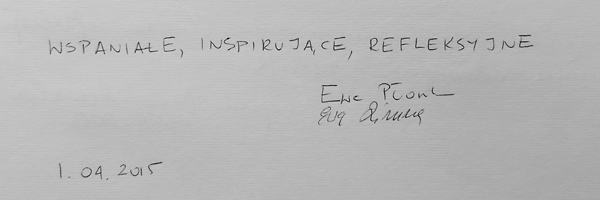 WSPANIAŁE, INSPIRUJĄCE, REFLEKSYJNE
Ewa
Ewa
1.04.2015